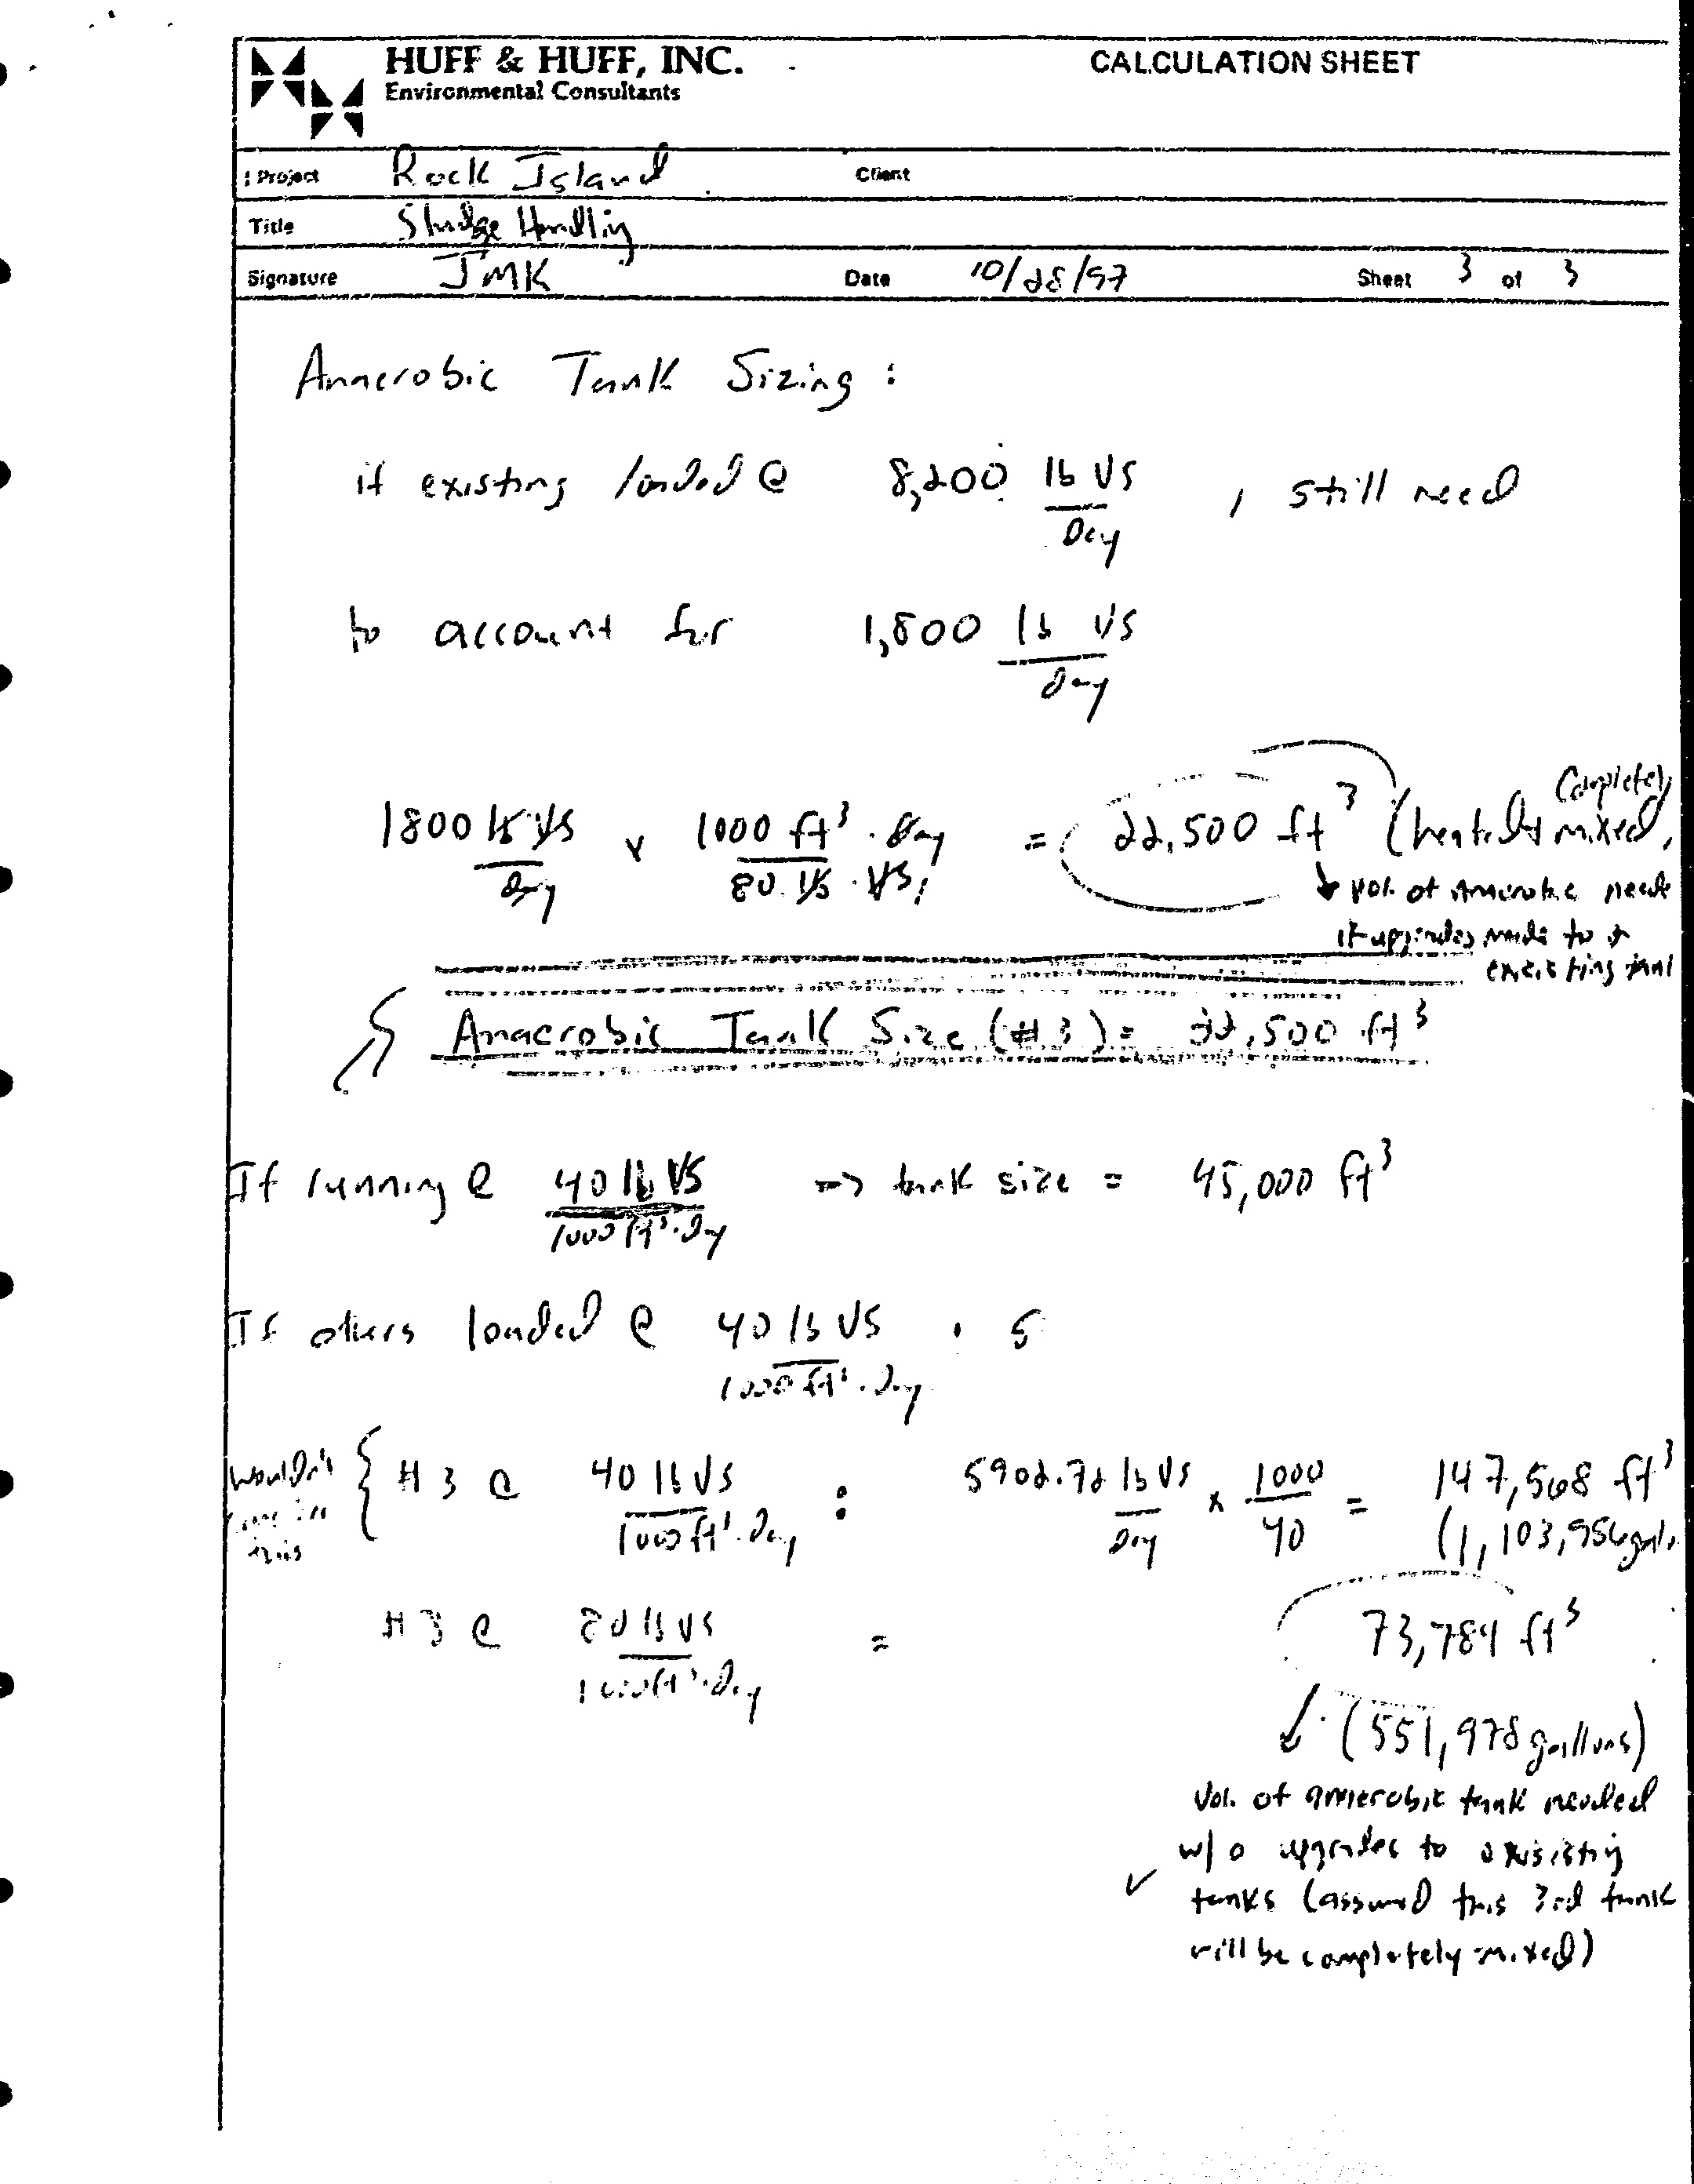 HUFF & HUFF, INC.
Environmental Consultants
CALCULATION SHEET
Project Rock Island Client
Title Sludge Handling
Signature JMK Date 10/28/97 Sheet 3 of 3
Anaerobic Tank Sizing :
if existing loaded @ 8,200 lb VS / Day , still need
to account for 1,800 lb VS / day
1800 lb VS / day x 1000 ft³ · day / 80 lb · VS = 22,500 ft³ (heated & completely mixed,
vol. of anaerobic needed
if upgrades made to
existing tank
Anaerobic Tank Size (#3) = 22,500 ft³
If running @ 40 lb VS / 1000 ft³·Day => tank size = 45,000 ft³
If others loaded @ 40 lb VS / 1000 ft³·Day
wouldn't
this
{ #3 @ 40 lb VS / 1000 ft³·Day : 5902.72 lb VS / Day x 1000 / 40 = 147,568 ft³
(1,103,956 gal.
#3 @ 80 lb VS / 1000 ft³·Day = 73,784 ft³
(551,978 gallons)
Vol. of anaerobic tank needed
w/o upgrades to existing
tanks (assumed this 3rd tank
will be completely mixed)